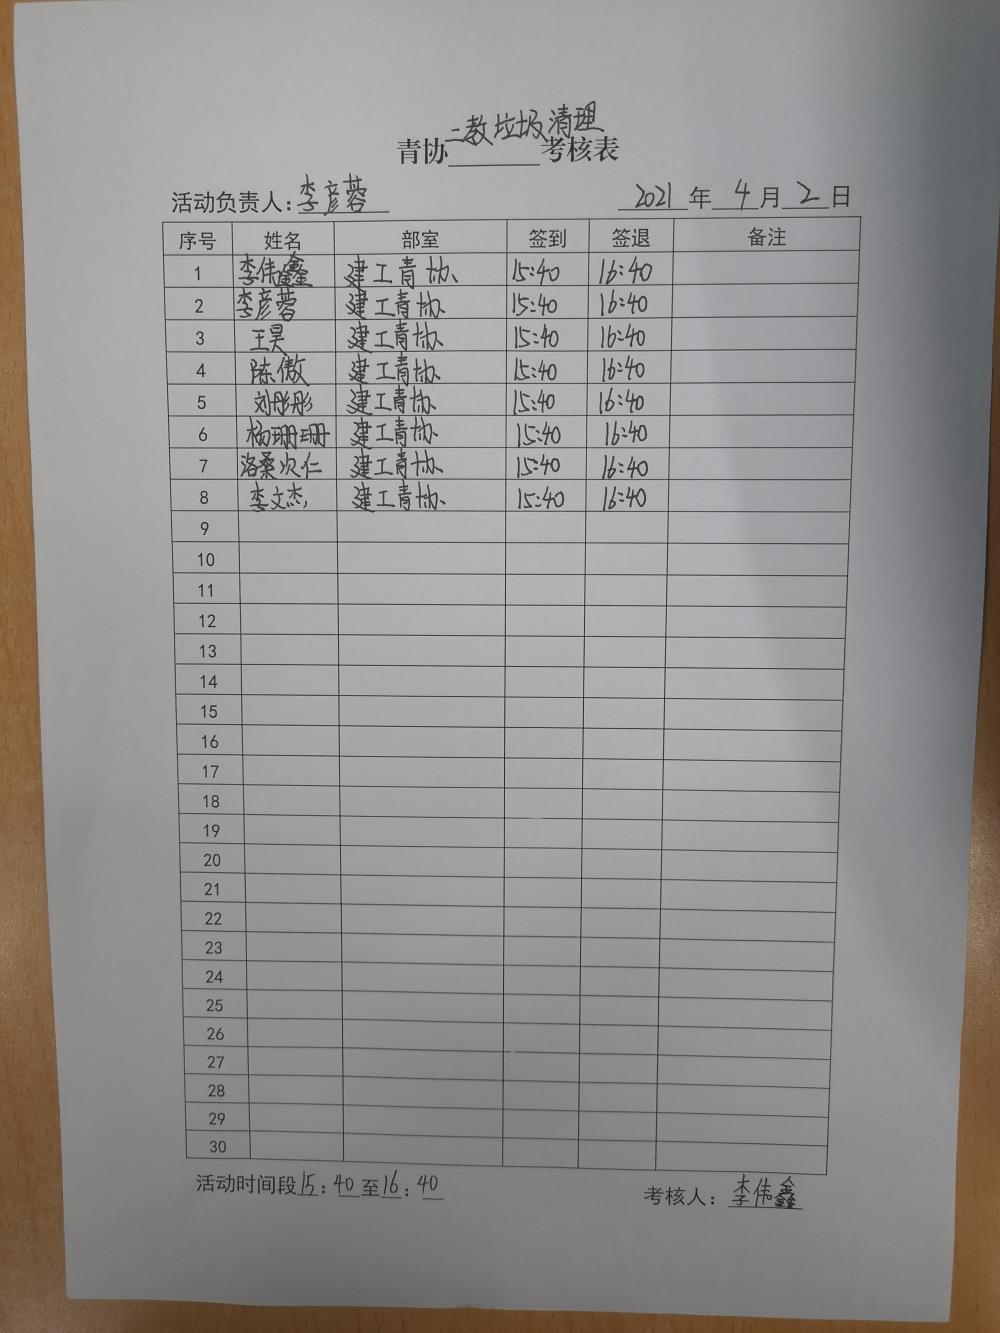 二教垃圾清理
青协______考核表
活动负责人：李彦蓉 2021年4月2日
序号 姓名 部室 签到 签退 备注
1 李伟鑫 建工青协 15:40 16:40
2 李彦蓉 建工青协 15:40 16:40
3 王昊 建工青协 15:40 16:40
4 陈傲 建工青协 15:40 16:40
5 刘彤彤 建工青协 15:40 16:40
6 杨珊珊 建工青协 15:40 16:40
7 洛桑次仁 建工青协 15:40 16:40
8 李文杰 建工青协 15:40 16:40
9
10
11
12
13
14
15
16
17
18
19
20
21
22
23
24
25
26
27
28
29
30
活动时间段15:40至16:40 考核人：李伟鑫